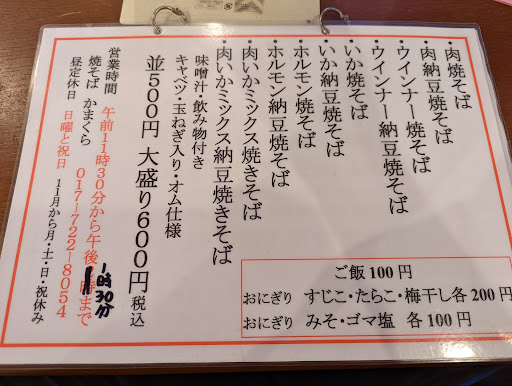 ・肉焼そば
・肉納豆焼そば
・ウインナー焼そば
・ウインナー納豆焼そば
・いか焼そば
・いか納豆焼そば
・ホルモン焼そば
・ホルモン納豆焼そば
・肉いかミックス焼きそば
・肉いかミックス納豆焼きそば
味噌汁・飲み物付き
キャベツ・玉ねぎ入り・オム仕様
並500円 大盛り600円 税込
営業時間 午前11時30分から午後1時まで
1時30分
焼そば かまくら 017-722-8054
昼定休日 日曜と祝日 11月から月・土・日・祝休み
ご飯100円
おにぎり すじこ・たらこ・梅干し各200円
おにぎり みそ・ゴマ塩 各100円